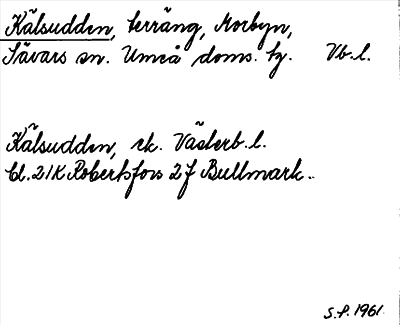 Kälsudden, terräng, Morbyn,
Sävars sn. Umeå doms. tg. Vb.l.
Kälsudden, rk. Västerb.l.
bl. 21K Robertsfors 2f Bullmark.
S.P. 1961.